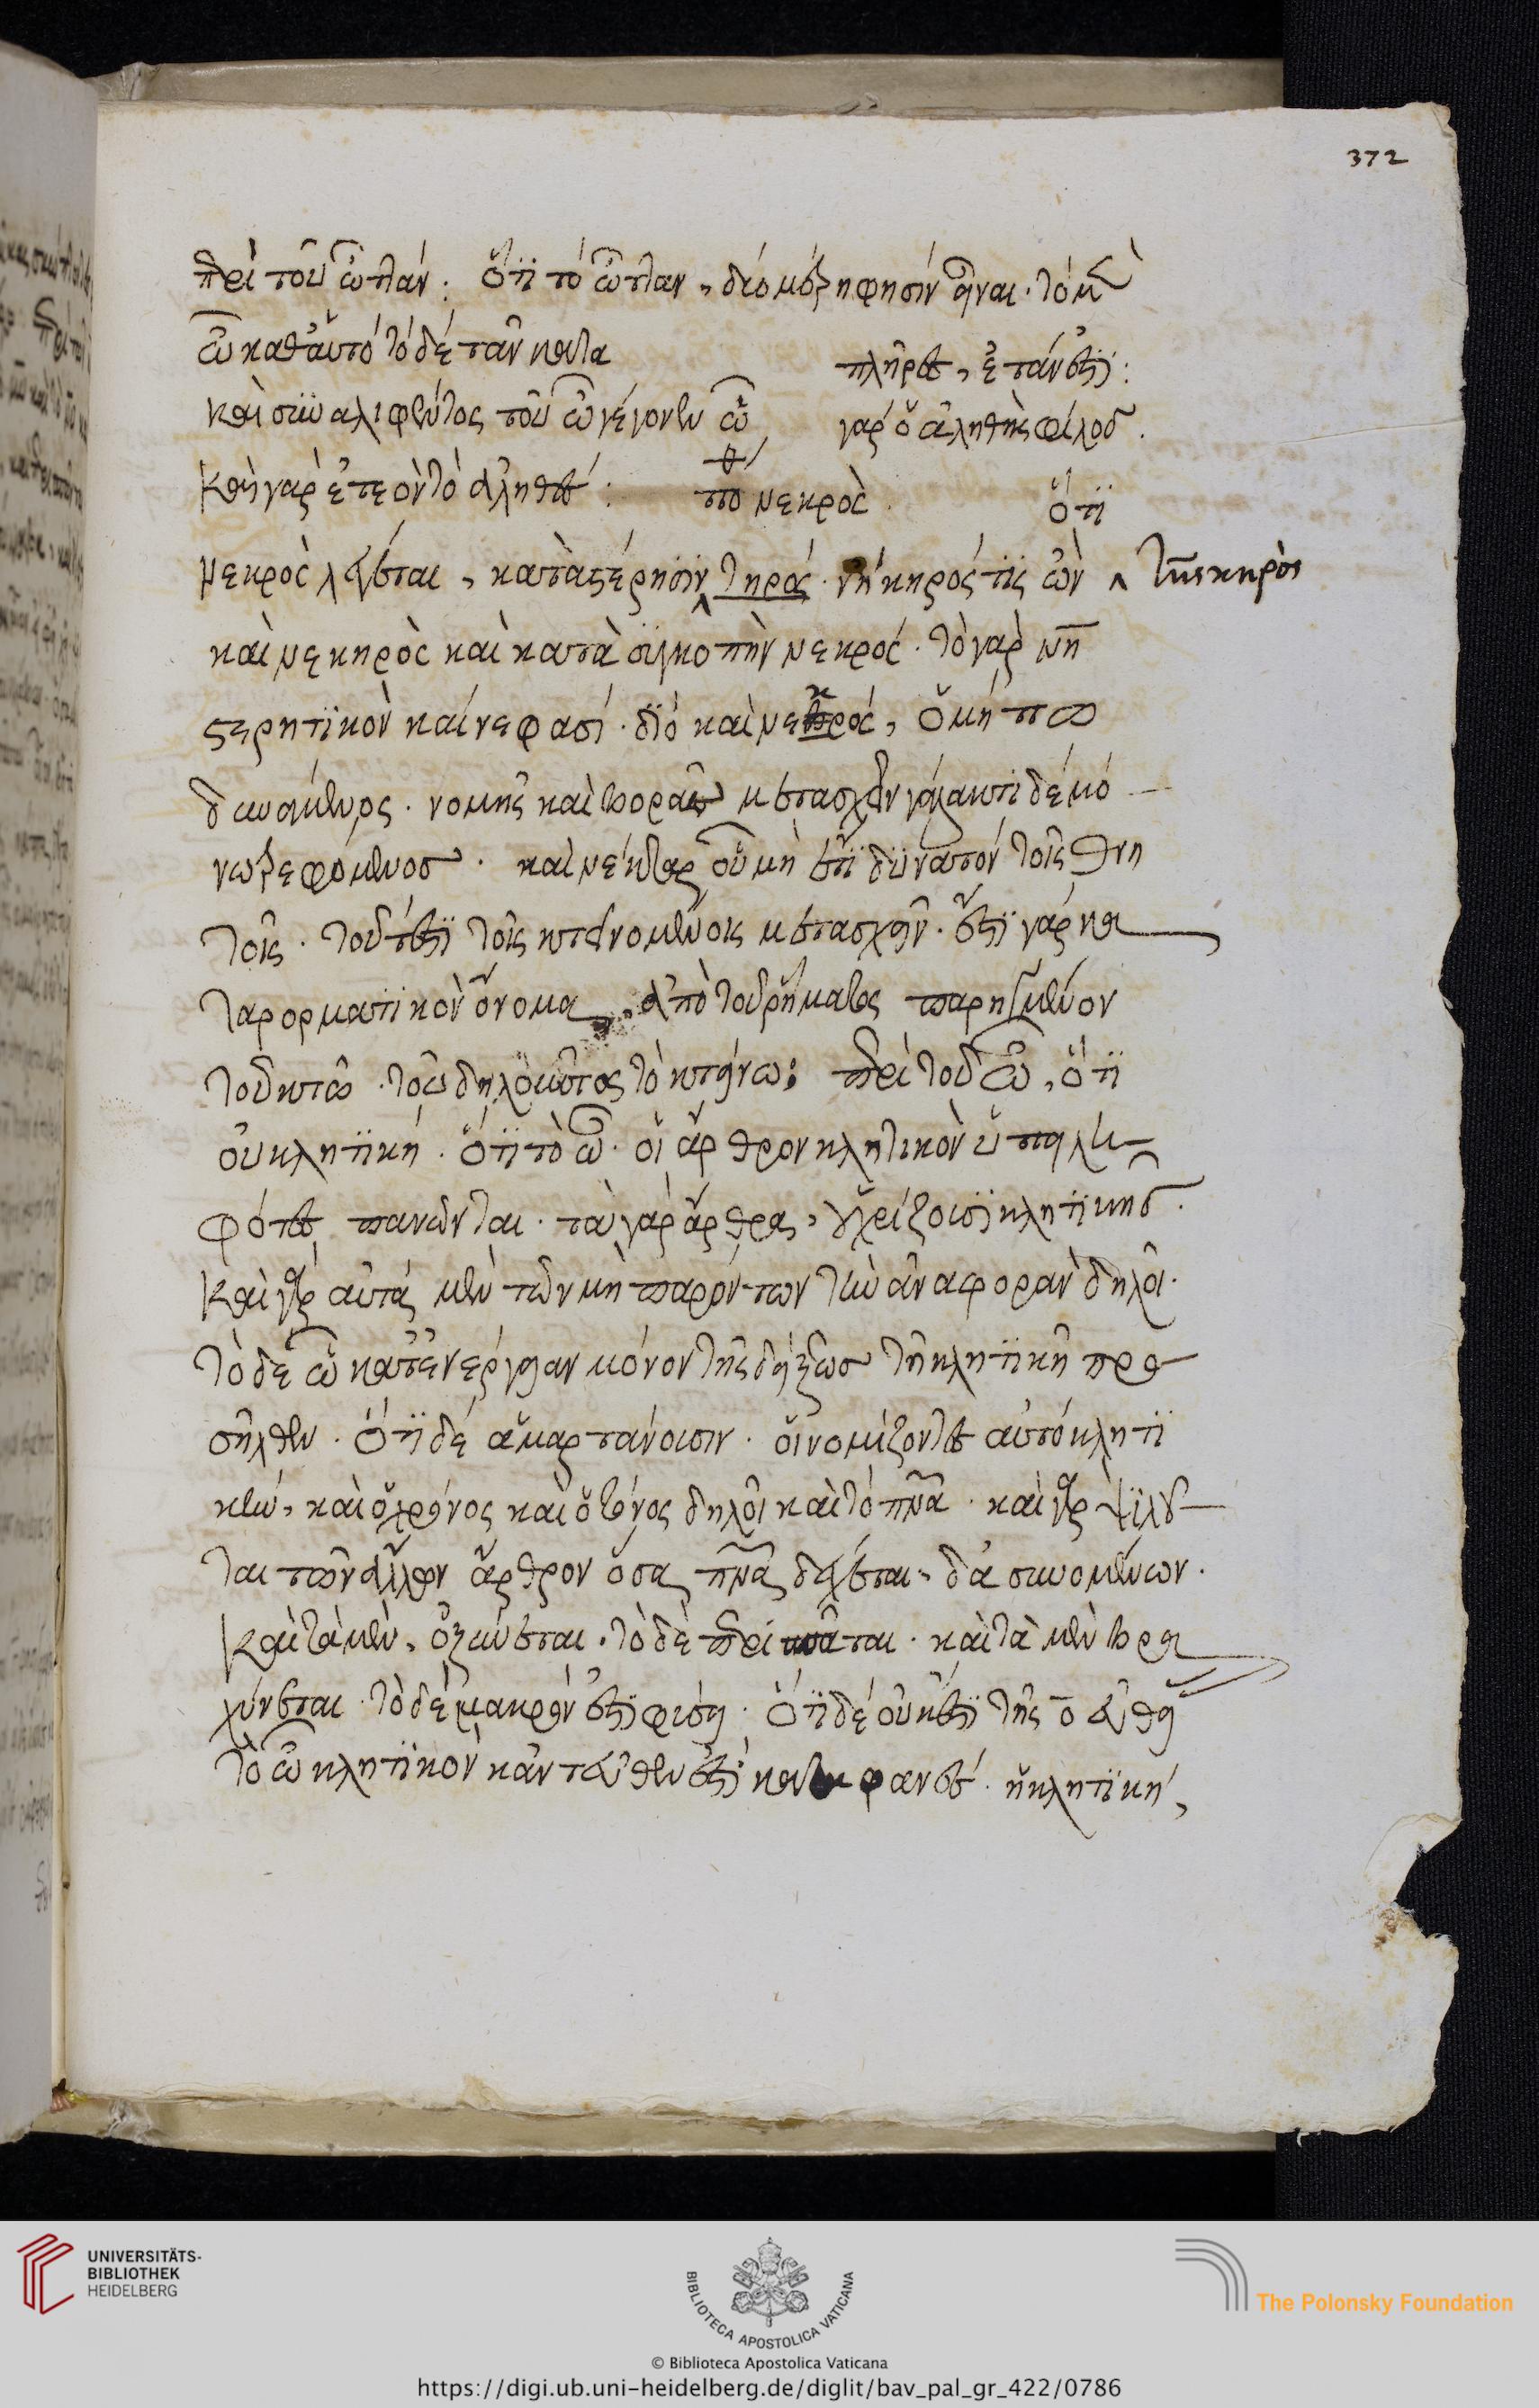 372
περὶ τοῦ ὦ πλάν: ὅτι τὸ ὦ πλαν, δύο μέρη φησὶν εἶναι· τὸ μὲν
ὦ καθ' αὑτὸ τὸ δὲ τὰν κατα πλῆρες, ἐτάν ἐστι:
καὶ συναλιφέντος τοῦ ὦ γέγονεν ὦ γὰρ ὁ ἀληθὴς φίλος.
καὶ γὰρ ἐτεὸν τὸ ἀληθές: το νεκρὸς. ὅτι
νεκρὸς λέγεται, κατὰ στέρησιν τῆράς· νήκηρός τις ὢν ‸ τῆς κηρὸς
καὶ νεκηρὸς καὶ κατὰ συγκοπὴν νεκρός· τὸ γὰρ νη
στερητικὸν καί νε φασί· διὸ καὶ νεκρός, ὁ μή πω
δυνάμενος· νομῆς καὶ βορᾶς μετασχεῖν γάλακτι δὲ μό
νῳ τρεφόμενος· καὶ νέκταρ οὗ μὴ ἔστι δυνατὸν τοῖς θνη
τοῖς· τουτέστι τοῖς κτεινομένοις μετασχεῖν· ἔστι γάρ κα
ταρορματικὸν ὄνομα, ἀπὸ τοῦ ῥήματος παρηγμένον
τοῦ κτῶ· τοῦ δηλοῦντος τὸ κτείνω: περὶ τοῦ ὦ, ὅτι
οὐ κλητική· ὅτι τὸ ὦ· οἱ ἄρθρον κλητικὸν ὑπειλη
φότες πλανῶνται· τὰ γὰρ ἄρθρα, χωρίζουσι κλητικῆς·
καὶ γὰρ αὐτά μὲν τῶν μὴ παρόντων τὴν ἀναφορὰν δηλοῖ·
τὸ δὲ ὦ κατ' ἐνέργειαν μόνον τῆς δείξεως τῇ κλητικῇ προ
σῆλθεν· ὅτι δὲ ἁμαρτάνουσιν· οἱ νομίζοντες αὐτὸ κλητι
κὴν, καὶ ὁ χρόνος καὶ ὁ τόνος δηλοῖ καὶ τὸ πνα· καὶ γὰρ ψιλοῦ
ται τῶν ἄλλων ἄρθρον ὅσα πνα δέχεται, δασυνομένων·
καὶ τὰ μὲν, ὀξύνεται· τὸ δὲ περισπᾶται· καὶ τὰ μὲν βρα
χύνεται· τὸ δὲ μακρόν ἐστι φύσει· ὅτι δὲ οὐκ ἔστι τῆς ο εὐθεί
τὸ ὦ κλητικὸν κἀντεῦθεν ἐστὶ καταφανές· ἡ κλητική,
UNIVERSITÄTS-
BIBLIOTHEK
HEIDELBERG
BIBLIOTECA APOSTOLICA VATICANA
The Polonsky Foundation
© Biblioteca Apostolica Vaticana
https://digi.ub.uni-heidelberg.de/diglit/bav_pal_gr_422/0786